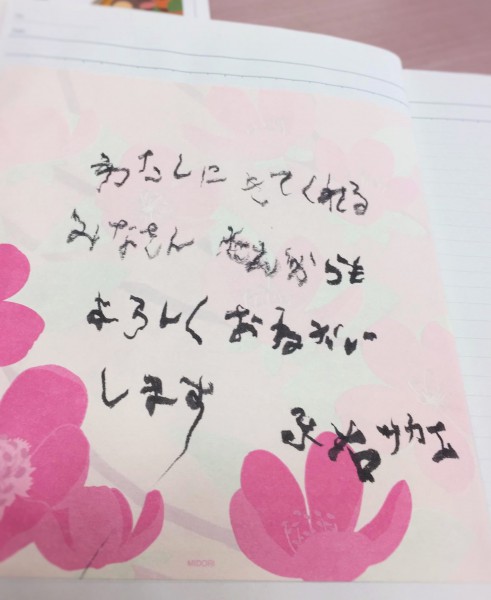 わたしに きてくれる
みなさん これからも
よろしく おねがい
します
サカエ
MIDORI